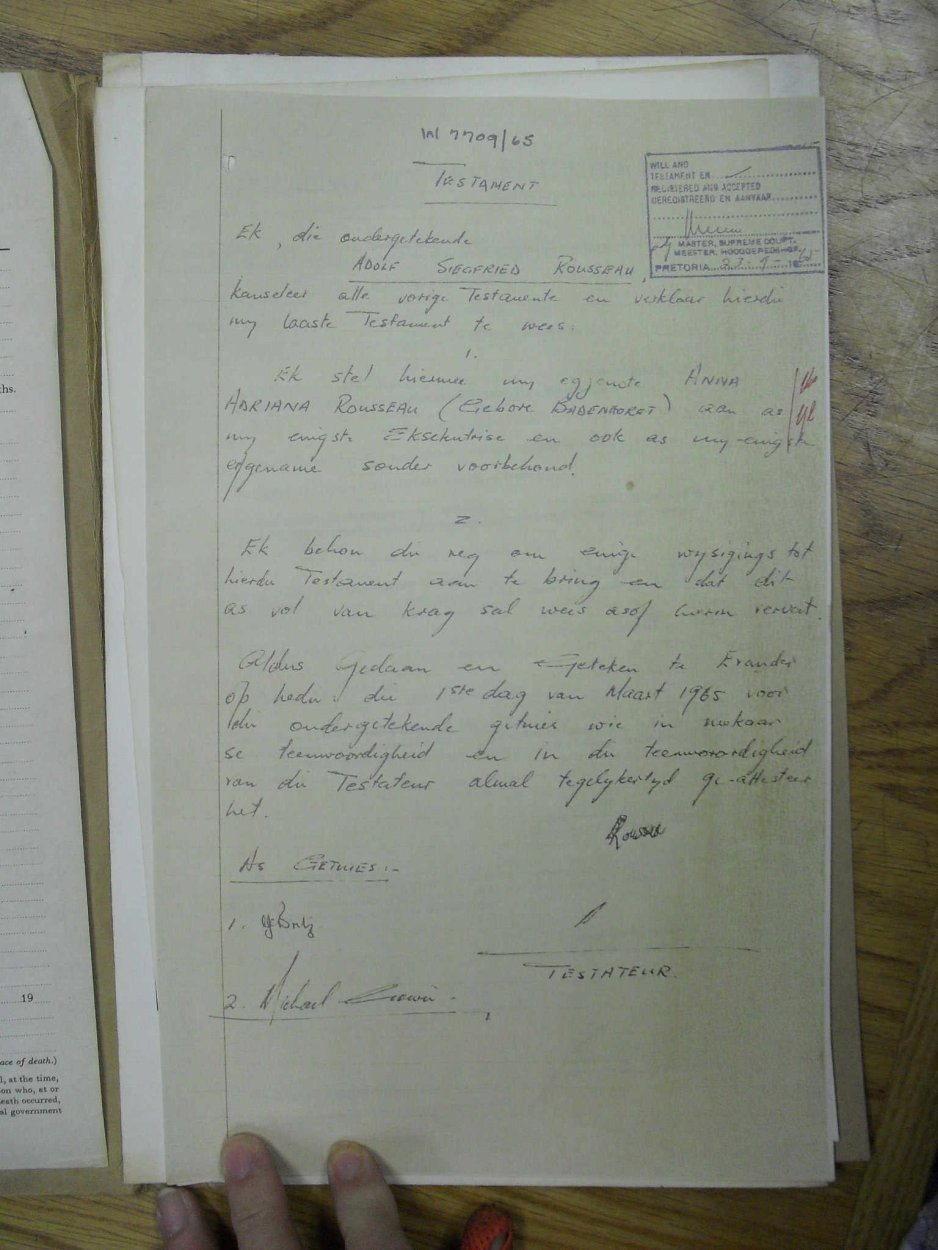 W 7709/65
TESTAMENT
WILL AND
TESTAMENT EN
REGISTERED AND ACCEPTED
GEREGISTREERD EN AANVAAR
MASTER, SUPREME COURT.
MEESTER, HOOGGEREGSHOF.
PRETORIA
Ek, die ondergetekende
ADOLF SIEGFRIED ROUSSEAU,
kanseleer alle vorige Testamente en verklaar hierdie
my laaste Testament te wees.
1.
Ek stel hiermee my eggenote ANNA
ADRIANA ROUSSEAU (Gebore BADENHORST) aan as
my enigste Eksekutrise en ook as my enigste
erfgename sonder voorbehoud.
2.
Ek behou die reg om enige wysigings tot
hierdie Testament aan te bring en dat dit
as vol van krag sal wees asof hierin vervat.
Aldus Gedaan en Geteken te Evander
op hede die 1ste dag van Maart 1965 voor
die ondergetekende getuies wie in mekaar
se teenwoordigheid en in die teenwoordigheid
van die Testateur almal tegelykertyd ge-attesteer
het.
AS GETUIES:-
1.
TESTATEUR.
2. Michael
ths.
19
ace of death.)
l, at the time,
on who, at or
eath occurred,
al government